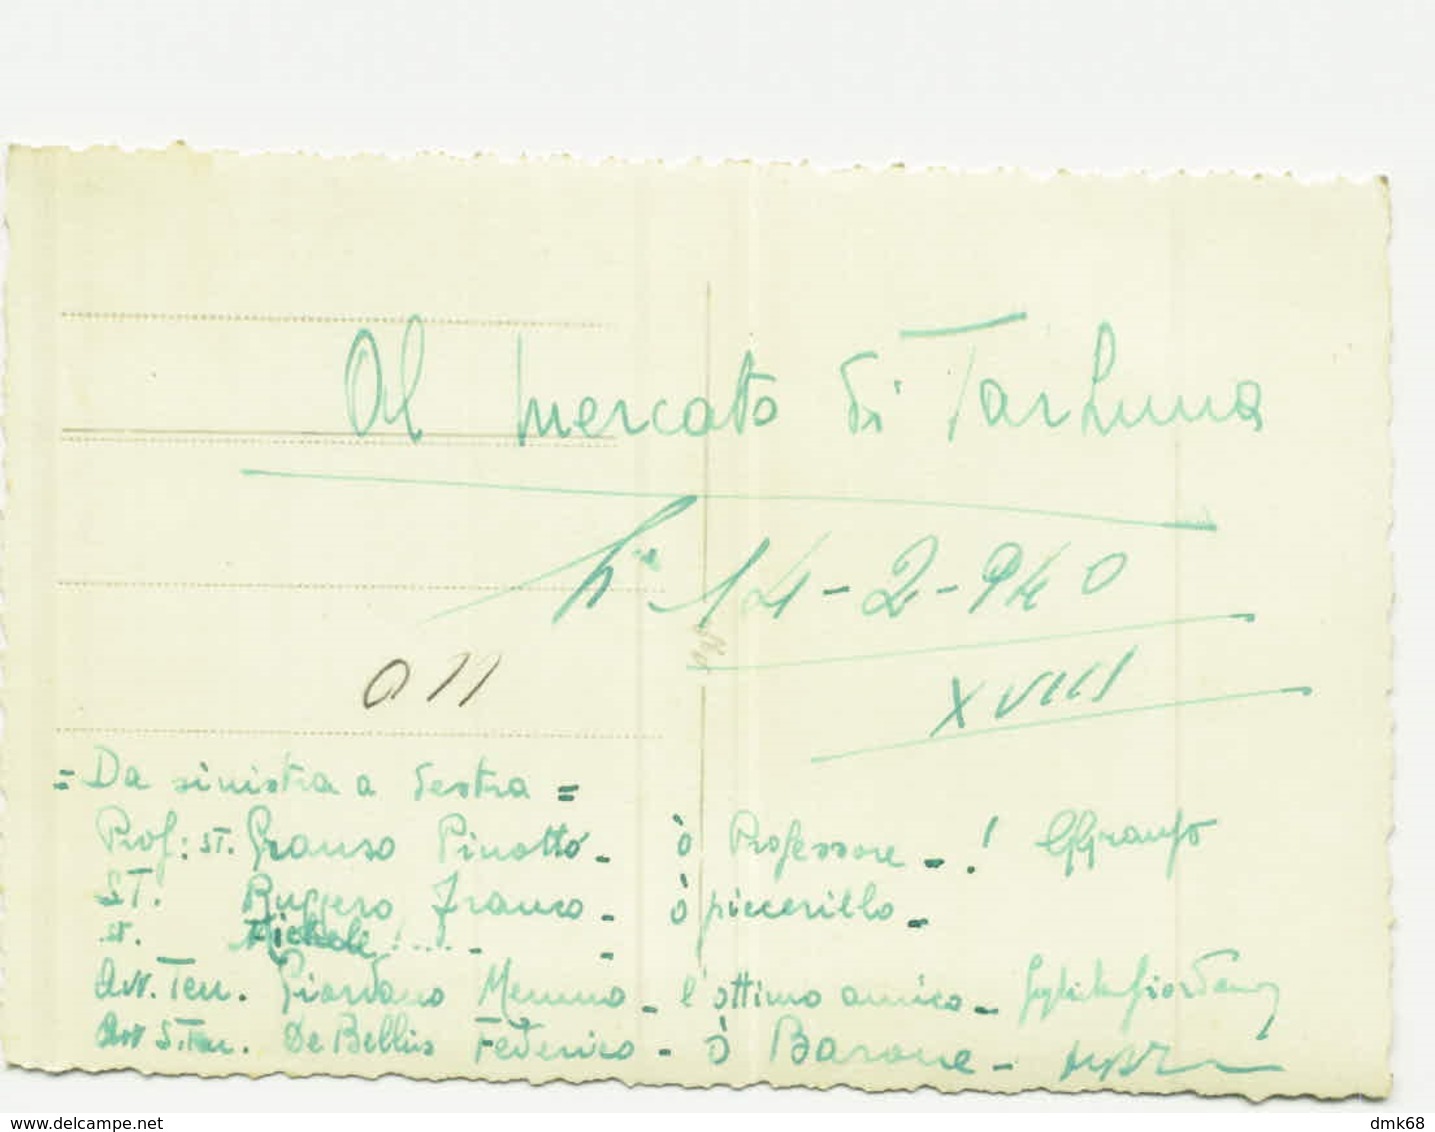 Al mercato di Tarhuna
lì 14-2-940
XVIII
011
= Da sinistra a destra =
Prof: ST. Granso Pinotto - ò Professore - !
ST. Ruggero Franco - ò piccerillo -
st. Michele ..... - -
Avv. Ten. Giordano Memmo - l'ottimo amico -
Avv S.Ten. De Bellis Federico - ò Barone -
www.delcampe.net
dmk68